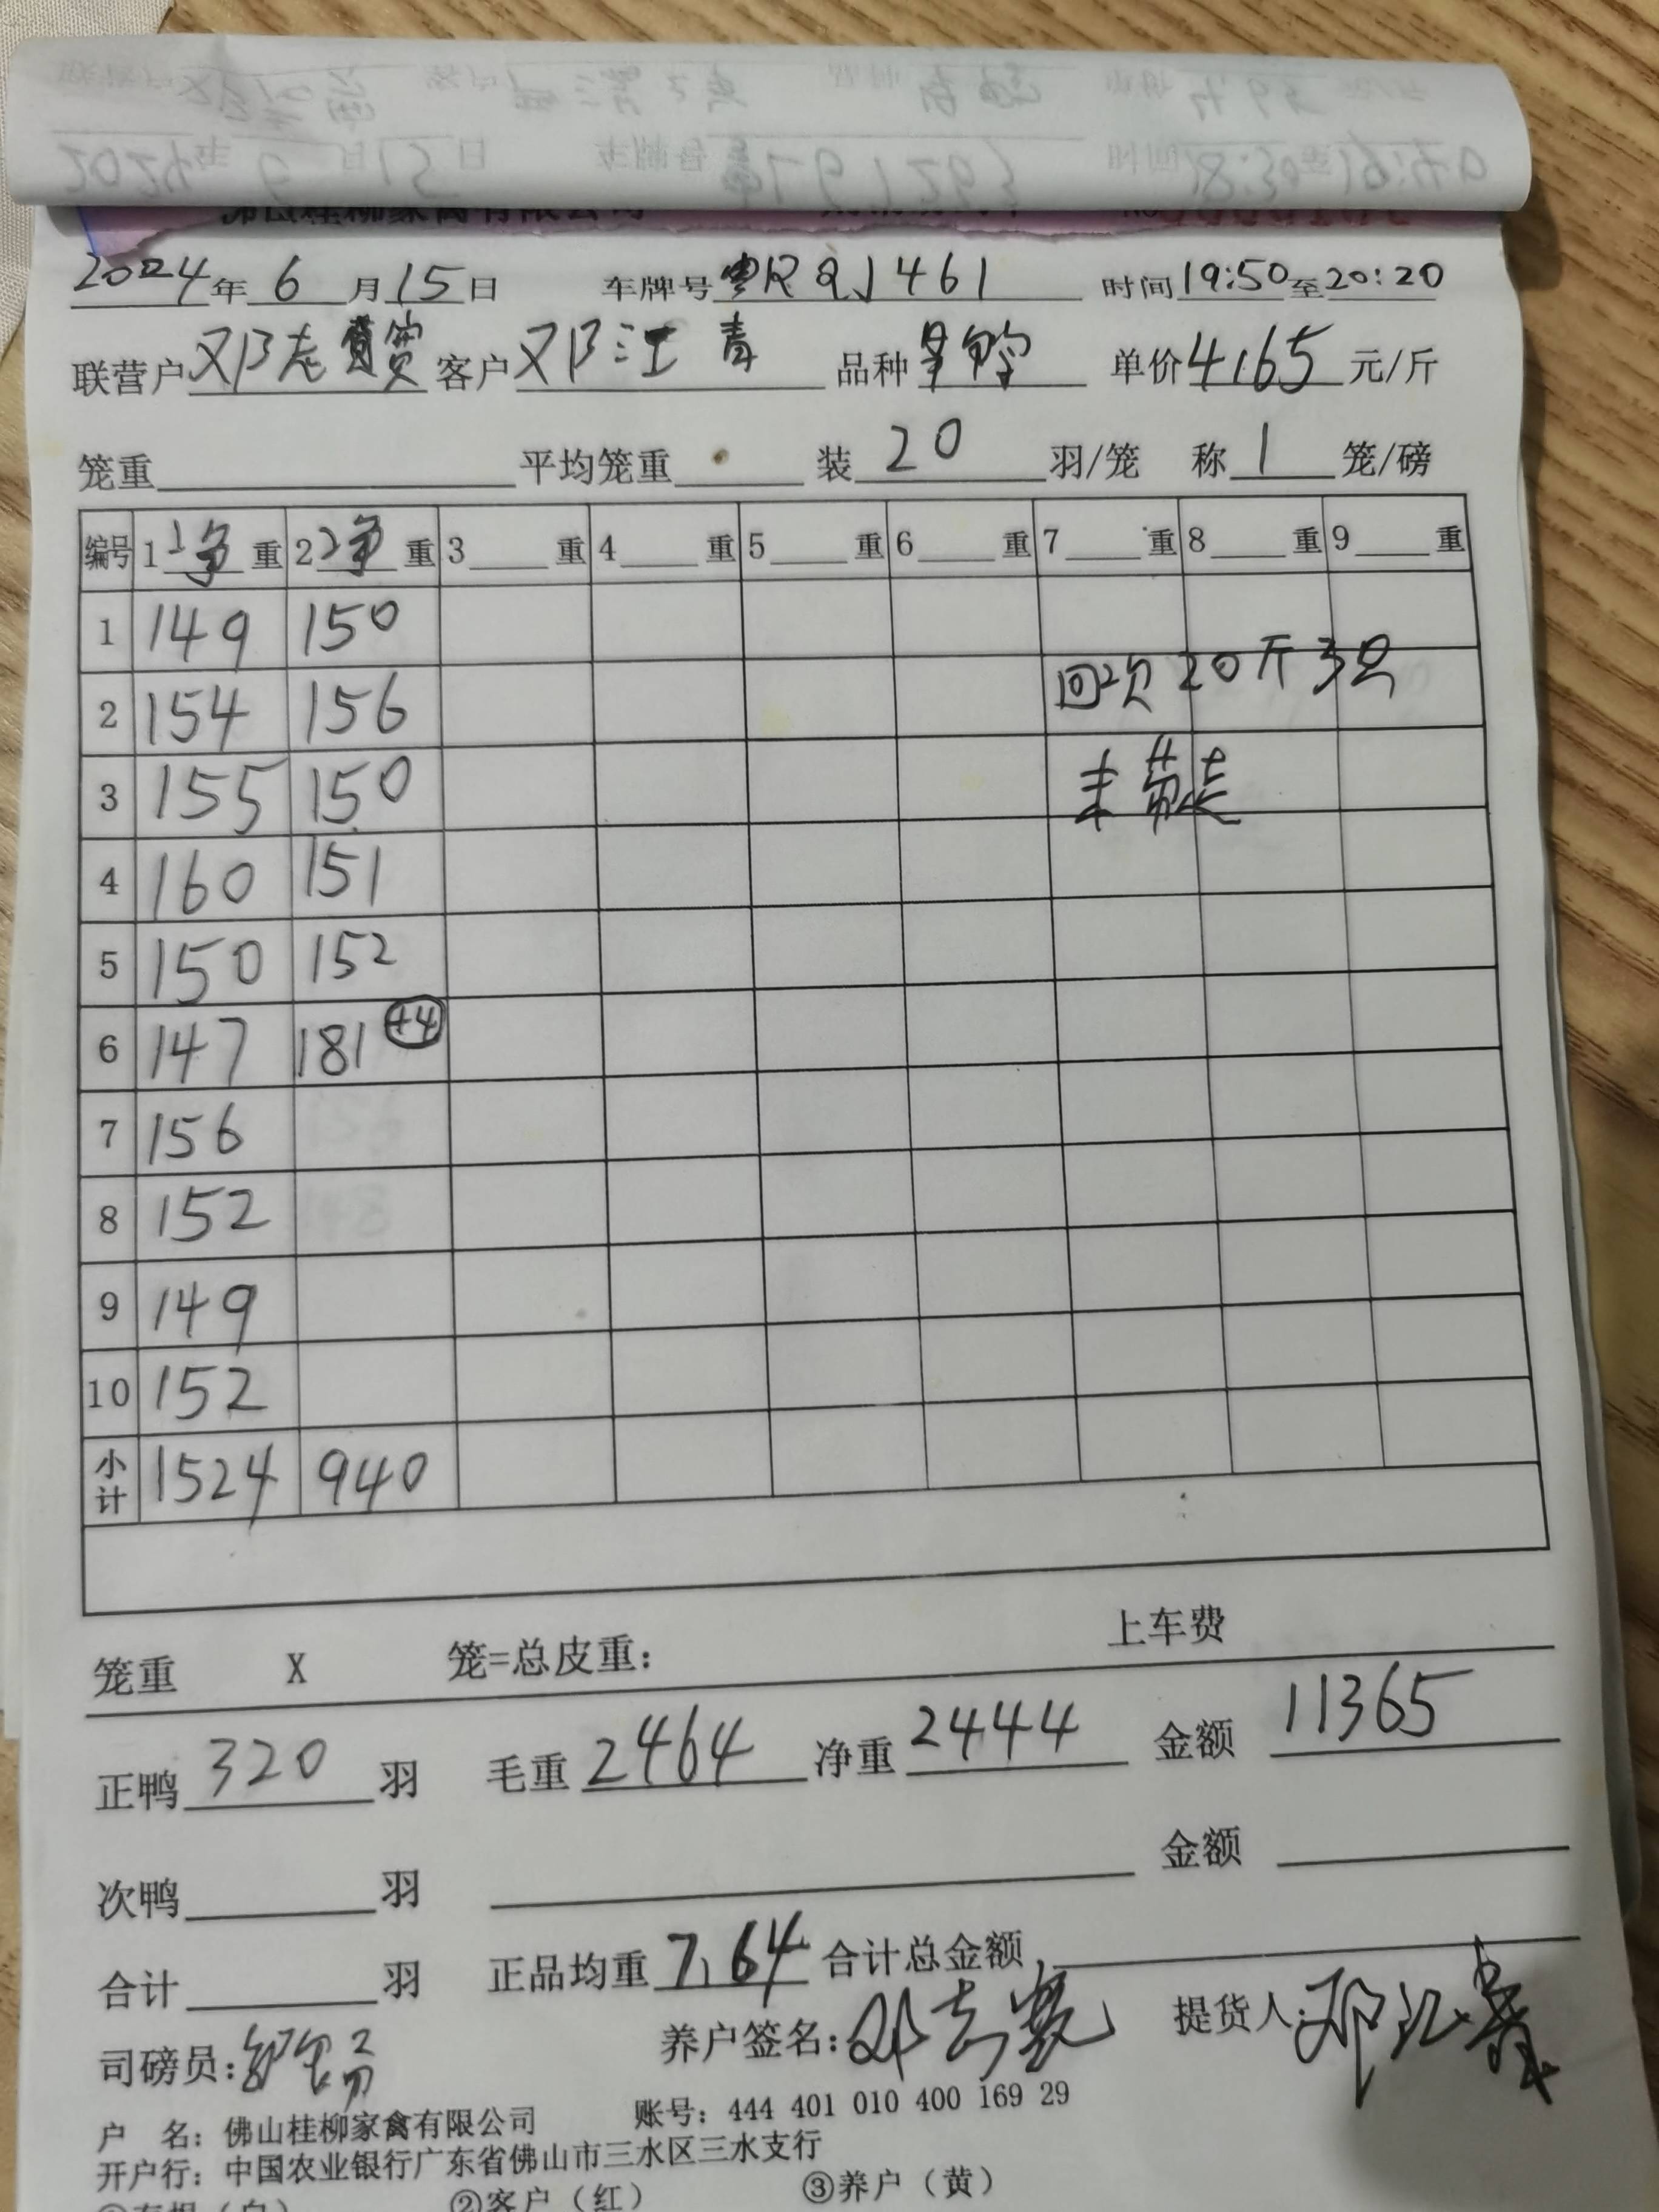 佛山桂柳家禽有限公司
2024年6月15日 车牌号粤RQJ461 时间19:50至20:20
联营户邓志 客户邓江青 品种 单价4.65元/斤
笼重 平均笼重 装20羽/笼 称1笼/磅
编号 1净重 2净重 3重 4重 5重 6重 7重 8重 9重
1 149 150
回次20斤3只
2 154 156
3 155 150 未带走
4 160 151
5 150 152
6 147 181 +4
7 156
8 152
9 149
10 152
小计 1524 940
笼重 X 笼=总皮重: 上车费
正鸭320羽 毛重2464 净重2444 金额11365
次鸭 羽 金额
合计 羽 正品均重7.64 合计总金额
司磅员: 养户签名: 提货人:
户 名: 佛山桂柳家禽有限公司 账号: 444 401 010 400 169 29
开户行: 中国农业银行广东省佛山市三水区三水支行
②客户(红) ③养户(黄)